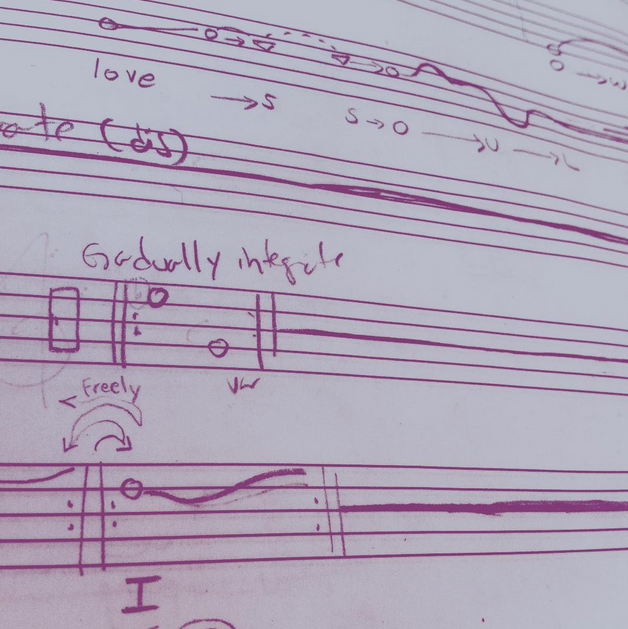 love
→ S
S → O → U → L
(dis)
Gradually integrate
Freely
I